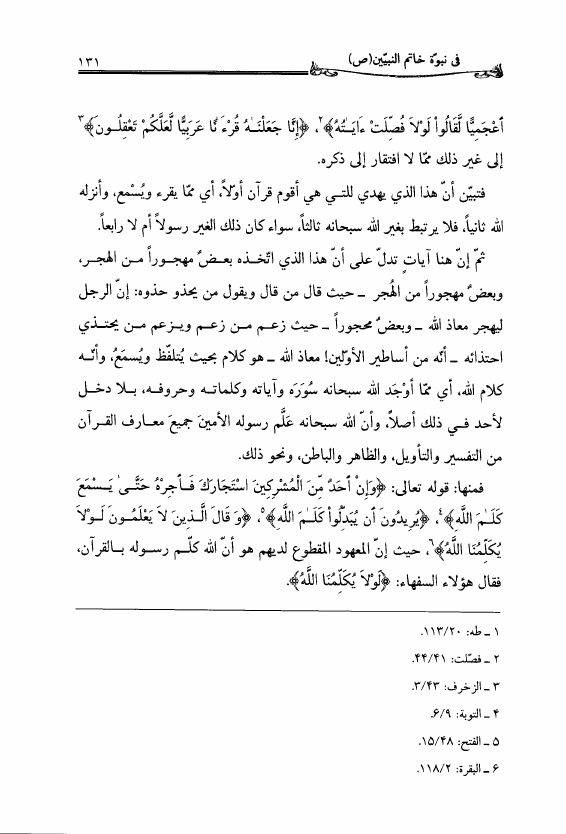 في نبوّة خاتم النبيّين(ص)
١٣١
أَعْجَمِيًّا لَّقَالُواْ لَوْلاَ فُصِّلَتْ ءَايَـٰتُهُ﴾٢، ﴿إِنَّا جَعَلْنَـٰهُ قُرْءَ ٰنًا عَرَبِيًّا لَّعَلَّكُمْ تَعْقِلُـونَ﴾٣
إلى غير ذلك ممّا لا افتقار إلى ذكره.
فتبيّن أنّ هذا الذي يهدي للتـي هي أقوم قرآن أوّلاً، أي ممّا يقرء ويُسْمع، وأنزله
الله ثانياً، فلا يرتبط بغير الله سبحانه ثالثاً، سواء كان ذلك الغير رسولاً أم لا رابعاً.
ثمّ إنّ هنا آياتٍ تدلّ على أنّ هذا الذي اتّخذه بعـضٌ مهجـوراً مـن الهجـر،
وبعضٌ مهجوراً من الهُجر ـ حيث قال من قال ويقول من يحذو حذوه: إنّ الرجل
ليهجر معاذ الله ـ وبعضٌ محجوراً ـ حيث زعـم مـن زعـم ويـزعم مـن يحتـذي
احتذائه ـ أنّه من أساطير الأوّلين! معاذ الله ـ هو كلام بحيث يُتلفّظ ويُسمَعُ، وأنّـه
كلام الله، أي ممّا أوْجَد الله سبحانه سُوَرَه وآياته وكلماتـه وحروفـه، بـلا دخـل
لأحد فـي ذلك أصلاً، وأنّ الله سبحانه علَّم رسوله الأمينَ جميعَ معـارف القـرآن
من التفسير والتأويل، والظاهر والباطن، ونحو ذلك.
فمنها: قوله تعالى: ﴿وَإِنْ أَحَدٌ مِّنَ الْمُشْرِكِينَ اسْتَجَارَكَ فَـأَجِرْهُ حَتَّـىٰ يَـسْمَعَ
كَلَـٰمَ اللَّهِ﴾٤، ﴿يُرِيدُونَ أَن يُبَدِّلُواْ كَلَـٰمَ اللَّهِ﴾٥، ﴿وَ قَالَ الَّـذِينَ لاَ يَعْلَمُـونَ لَـوْلاَ
يُكَلِّمُنَا اللَّهُ﴾٦، حيث إنّ المعهود المقطوع لديهم هو أنّ الله كلّـم رسـوله بـالقرآن،
فقال هؤلاء السفهاء: ﴿لَوْلاَ يُكَلِّمُنَا اللَّهُ﴾.
١ ـ طه: ١١٣/٢٠.
٢ ـ فصّلت: ۴۴/۴١.
٣ ـ الزخرف: ٣/۴٣.
۴ ـ التوبة: ۶/٩.
۵ ـ الفتح: ١۵/۴٨.
۶ ـ البقرة: ١١٨/٢.